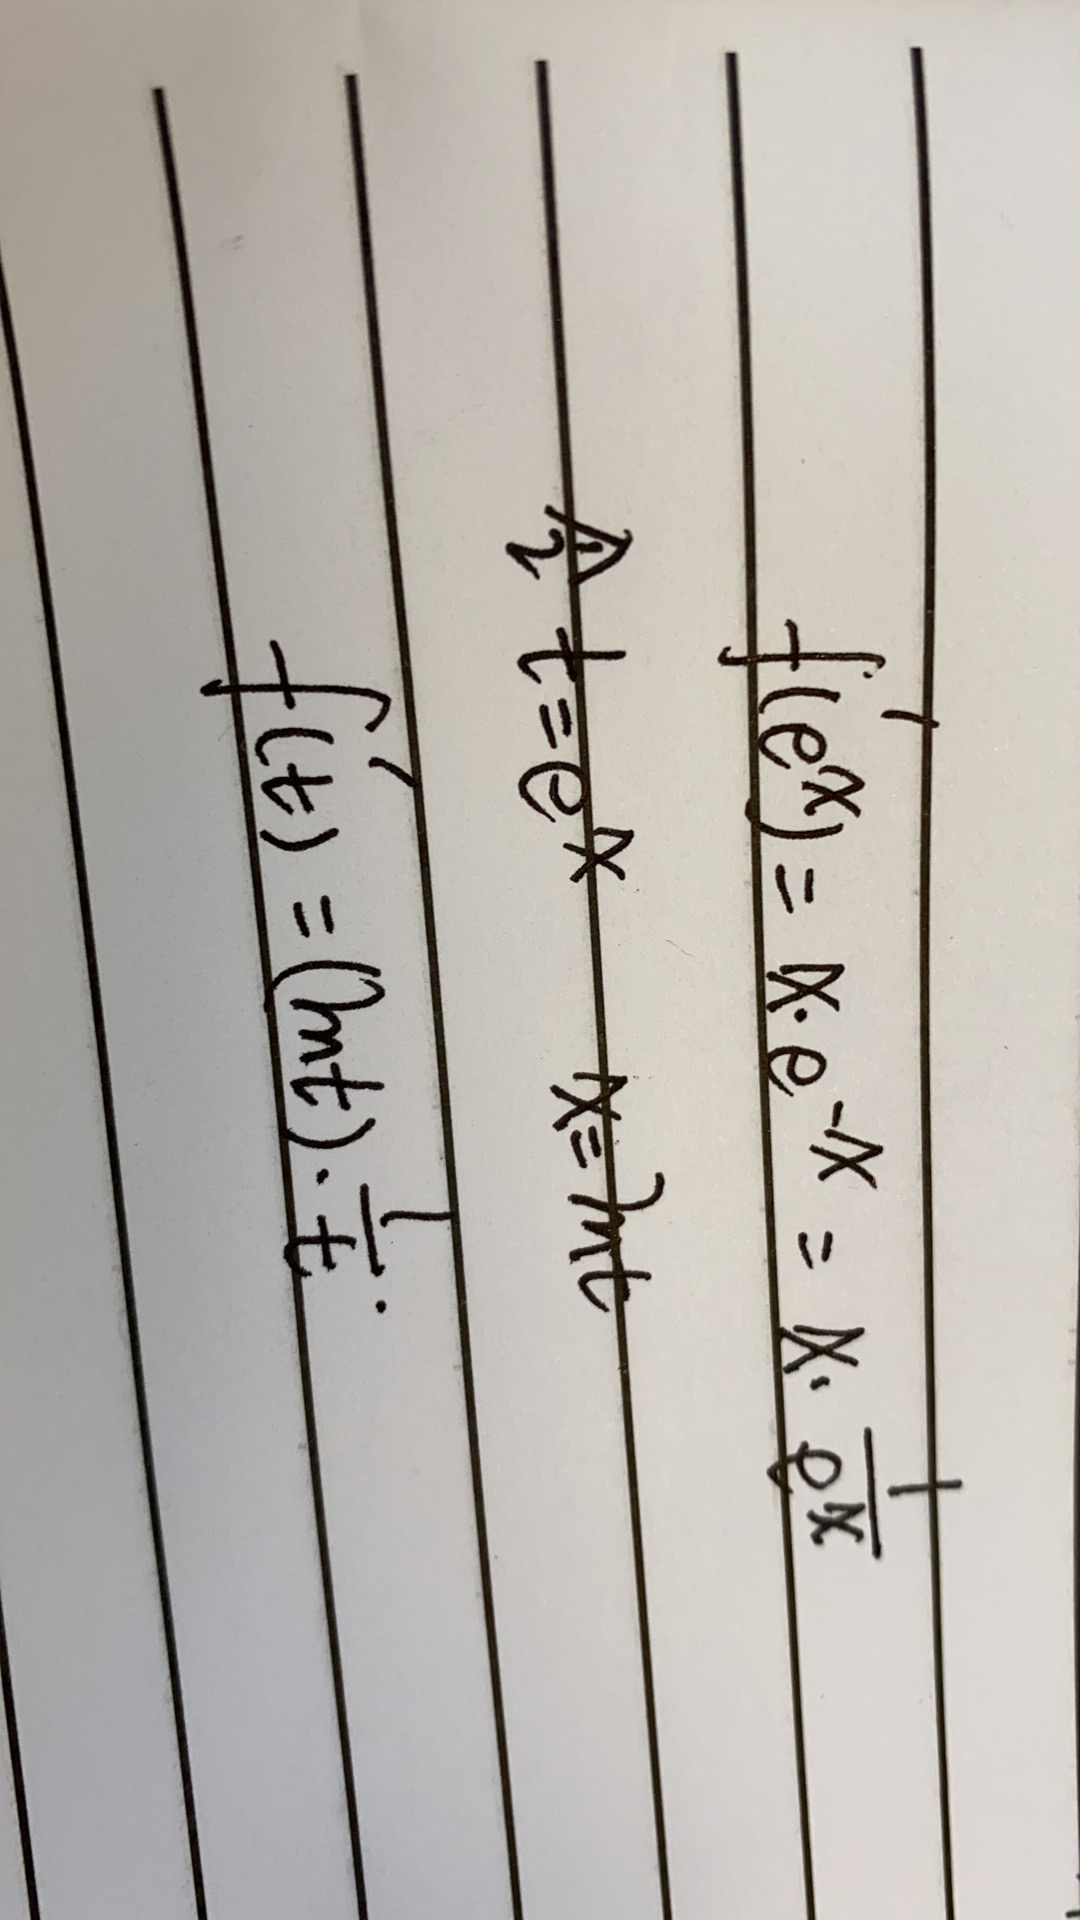 f'(e^x) = x·e^{-x} = x·\frac{1}{e^x}
令 t=e^x x=lnt
f'(t) = (lnt)·\frac{1}{t}.